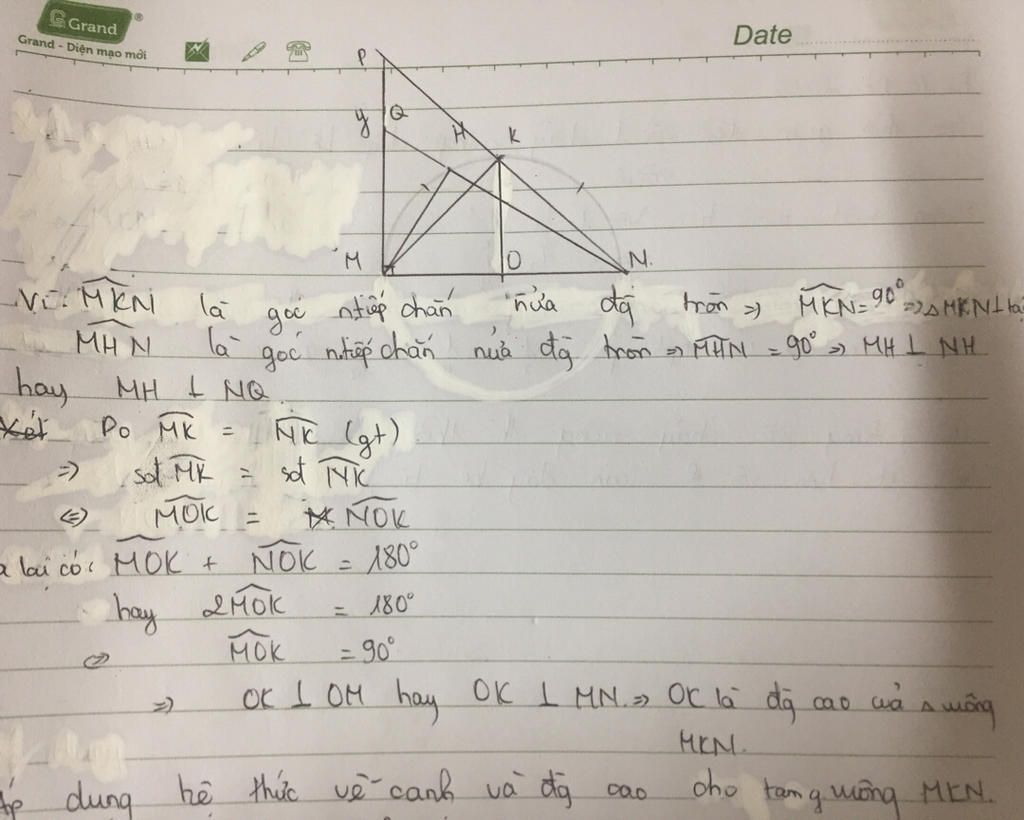 Grand ®
Grand - Diện mạo mới
Date
P
y Q
H K
M O N.
Vì: MKN là góc ntiếp chắn nửa đg tròn => MKN = 90° => △MKN ⊥
MHN là góc ntiếp chắn nửa đg tròn => MHN = 90° => MH ⊥ NH
hay MH ⊥ NQ.
Xét Do MK = NK (gt)
=> sđ MK = sđ NK
<=> MOK = NOK
lại có: MOK + NOK = 180°
hay 2MOK = 180°
<=> MOK = 90°
=> OK ⊥ OM hay OK ⊥ MN. => OK là đg cao của △ vuông
MKN.
Áp dụng hệ thức về cạnh và đg cao cho tam g vuông MKN.